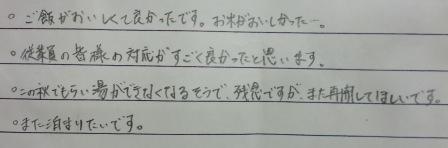 ○ ご飯がおいしくて良かったです。お米がおいしかったー。
○従業員の皆様の対応がすごく良かったと思います。
○この秋でもらい湯ができなくなるそうで、残念ですが、また再開してほしいです。
○また泊まりたいです。